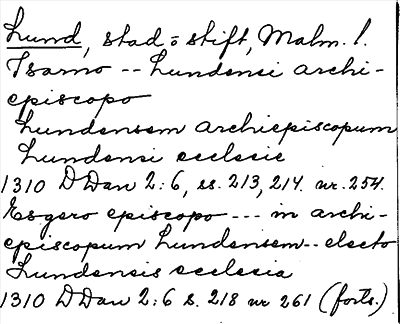 Lund, stad o stift, Malm. l.
Isarno -- Lundensi archi-
episcopo
Lundensem archiepiscopum
Lundensi ecclesie
1310 DDan 2:6, ss. 213, 214. nr. 254.
Esgero episcopo --- in archi-
episcopum Lundensem -- electo
Lundensis ecclesia
1310 DDan 2:6 s. 218 nr 261 (forts.)